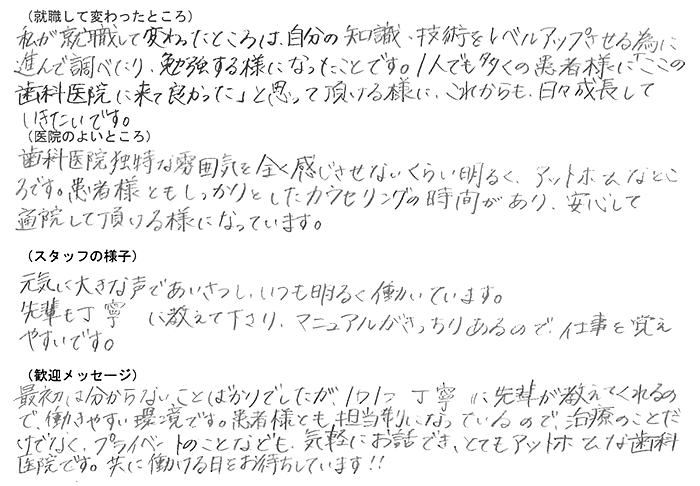 （就職して変わったところ）
私が就職して変わったところは、自分の知識、技術をレベルアップさせる為に
進んで調べたり、勉強する様になったことです。1人でも多くの患者様に「ここの
歯科医院に来て良かった」と思って頂ける様に、これからも、日々成長して
いきたいです。
（医院のよいところ）
歯科医院独特な雰囲気を全く感じさせないくらい明るく、アットホームなとこ
ろです。患者様ともしっかりとしたカウセリングの時間があり、安心して
通院して頂ける様になっています。
（スタッフの様子）
元気に大きな声であいさつし、いつも明るく働いています。
先輩も丁寧に教えて下さり、マニュアルがきっちりあるので、仕事を覚え
やすいです。
（歓迎メッセージ）
最初は分からないことばかりでしたが、1つ1つ丁寧に先輩が教えてくれるの
で、働きやすい環境です。患者様とも担当制になっているので、治療のことだ
けでなく、プライベートのことなども、気軽にお話でき、とてもアットホームな歯科
医院です。共に働ける日をお待ちしています!!